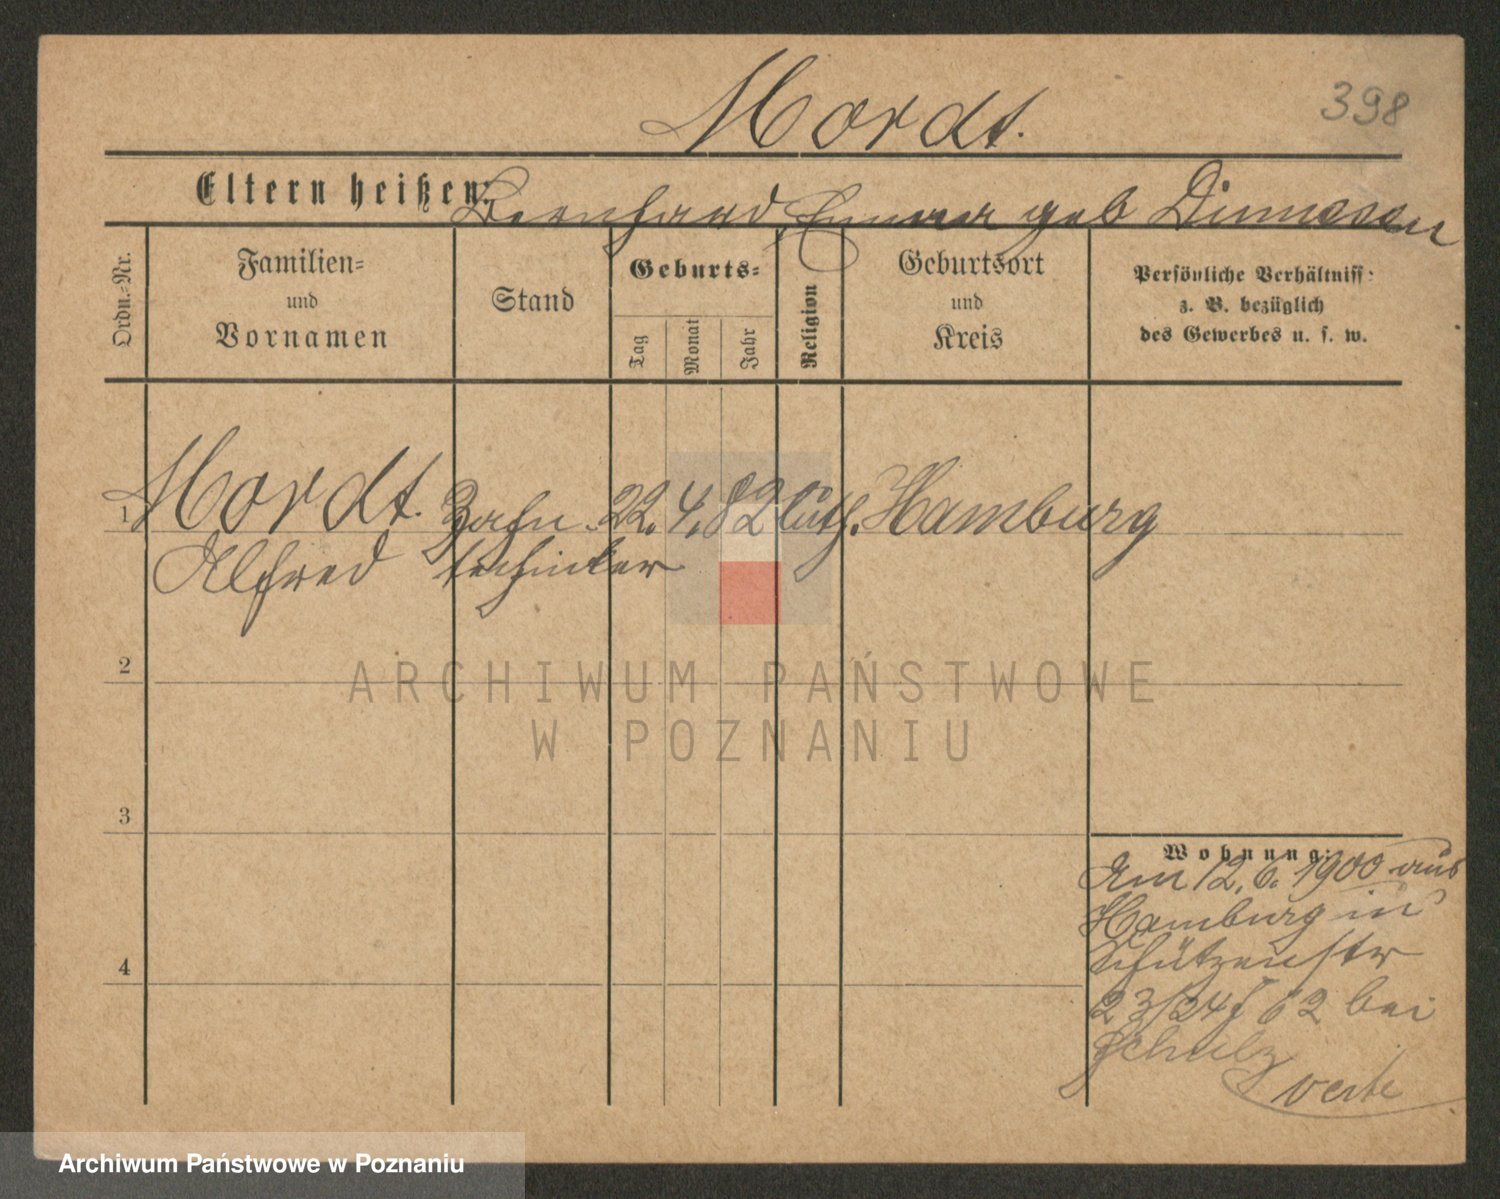 Mordt.
398
Eltern heißen:
Bernhard, Emma geb Dinnesen
Ordn.-Nr.
Familien=
und
Vornamen
Stand
Geburts=
Tag
Monat
Jahr
Religion
Geburtsort
und
Kreis
Persönliche Verhältniss:
z. B. bezüglich
des Gewerbes u. s. w.
1
Mordt. Zahn 22. 4. 82 luth. Hamburg
Alfred techniker
2
ARCHIWUM PAŃSTWOWE
W POZNANIU
3
4
Wohnung:
Am 12. 6. 1900 aus
Hamburg in
Schützenstr
23/24 bei
Schulz
Archiwum Państwowe w Poznaniu